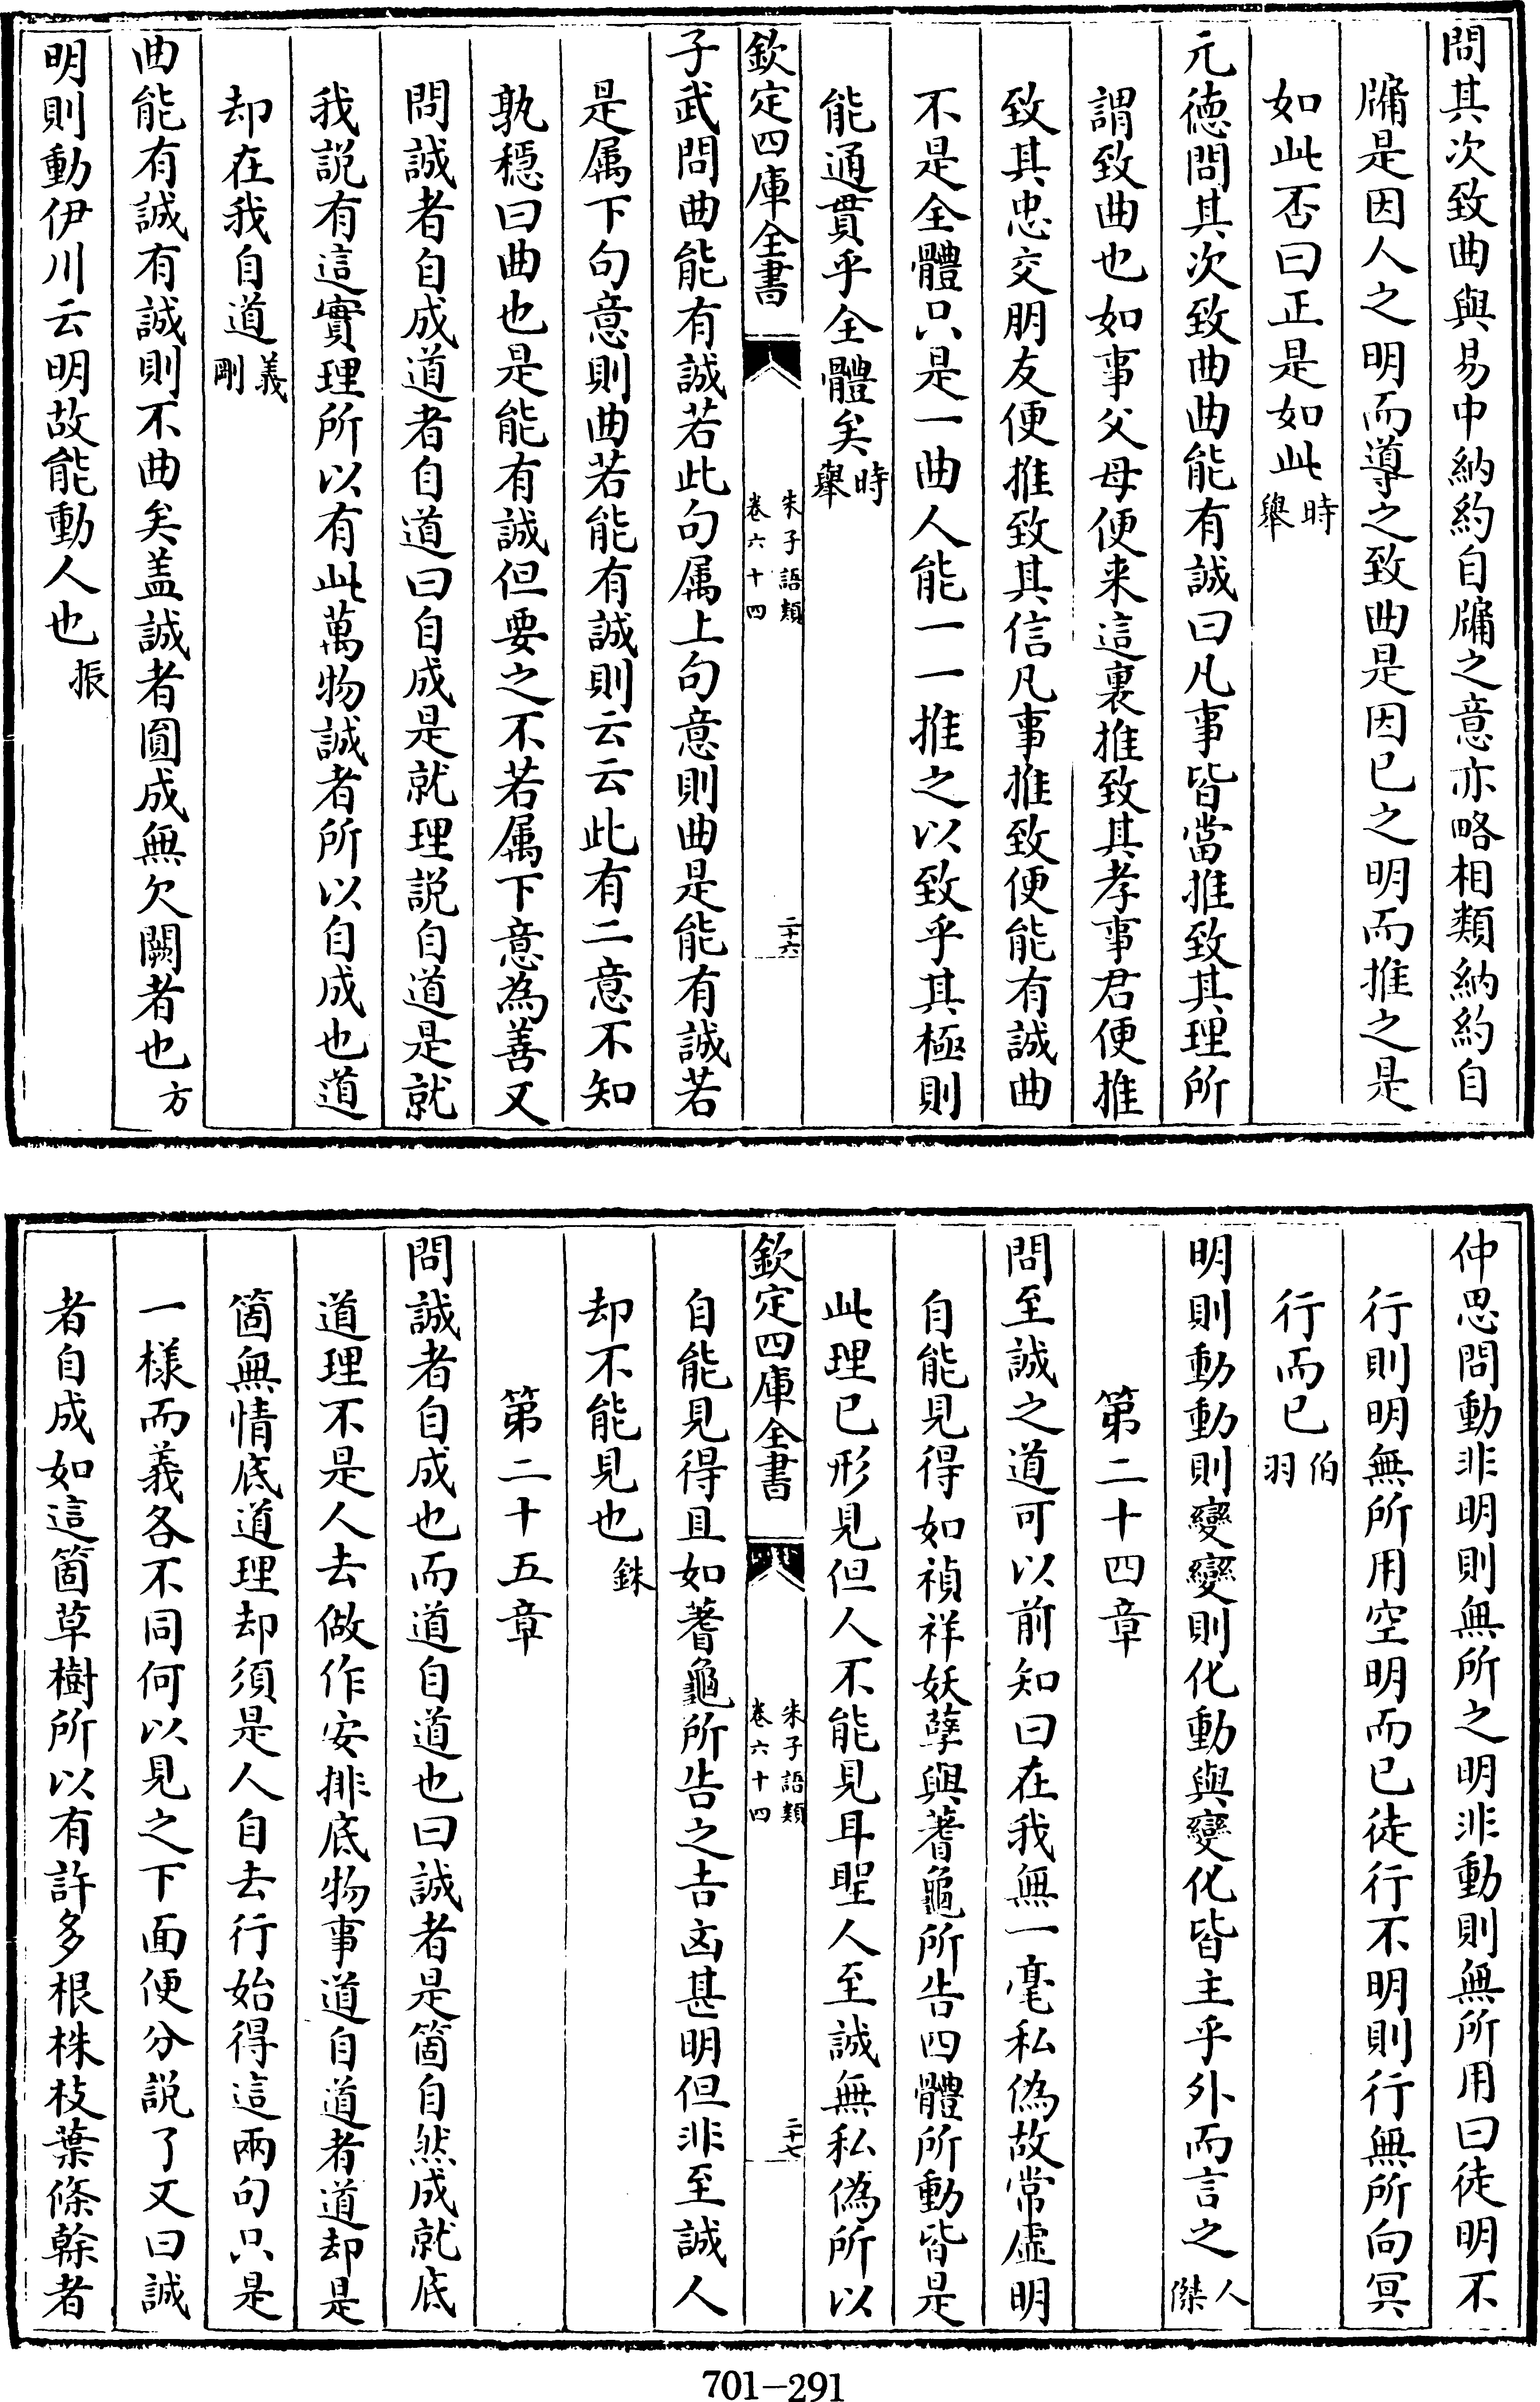 問其次致曲與易中納約自牖之意亦略相類納約自
牖是因人之明而導之致曲是因已之明而推之是
如此否曰正是如此時舉
元德問其次致曲曲能有誠曰凡事皆當推致其理所
謂致曲也如事父母便来這裏推致其孝事君便推
致其忠交朋友便推致其信凡事推致便能有誠曲
不是全體只是一曲人能一一推之以致乎其極則
能通貫乎全體矣時舉
欽定四庫全書 朱子語類卷六十四 二十六
子武問曲能有誠若此句属上句意則曲是能有誠若
是属下句意則曲若能有誠則云云此有二意不知
孰穩曰曲也是能有誠但要之不若属下意為善又
問誠者自成道者自道曰自成是就理説自道是就
我説有這實理所以有此萬物誠者所以自成也道
却在我自道義剛
曲能有誠有誠則不曲矣盖誠者圓成無欠闕者也方
明則動伊川云明故能動人也振
仲思問動非明則無所之明非動則無所用曰徒明不
行則明無所用空明而已徒行不明則行無所向冥
行而已伯羽
明則動動則變變則化動與變化皆主乎外而言之人傑
第二十四章
問至誠之道可以前知曰在我無一毫私偽故常虛明
自能見得如禎祥妖孽與蓍龜所告四體所動皆是
此理已形見但人不能見耳聖人至誠無私偽所以
欽定四庫全書 朱子語類卷六十四 二十七
自能見得且如蓍龜所告之吉凶甚明但非至誠人
却不能見也銖
第二十五章
問誠者自成也而道自道也曰誠者是箇自然成就底
道理不是人去做作安排底物事道自道者道却是
箇無情底道理却須是人自去行始得這兩句只是
一樣而義各不同何以見之下面便分説了又曰誠
者自成如這箇草樹所以有許多根株枝葉條榦者
701-291